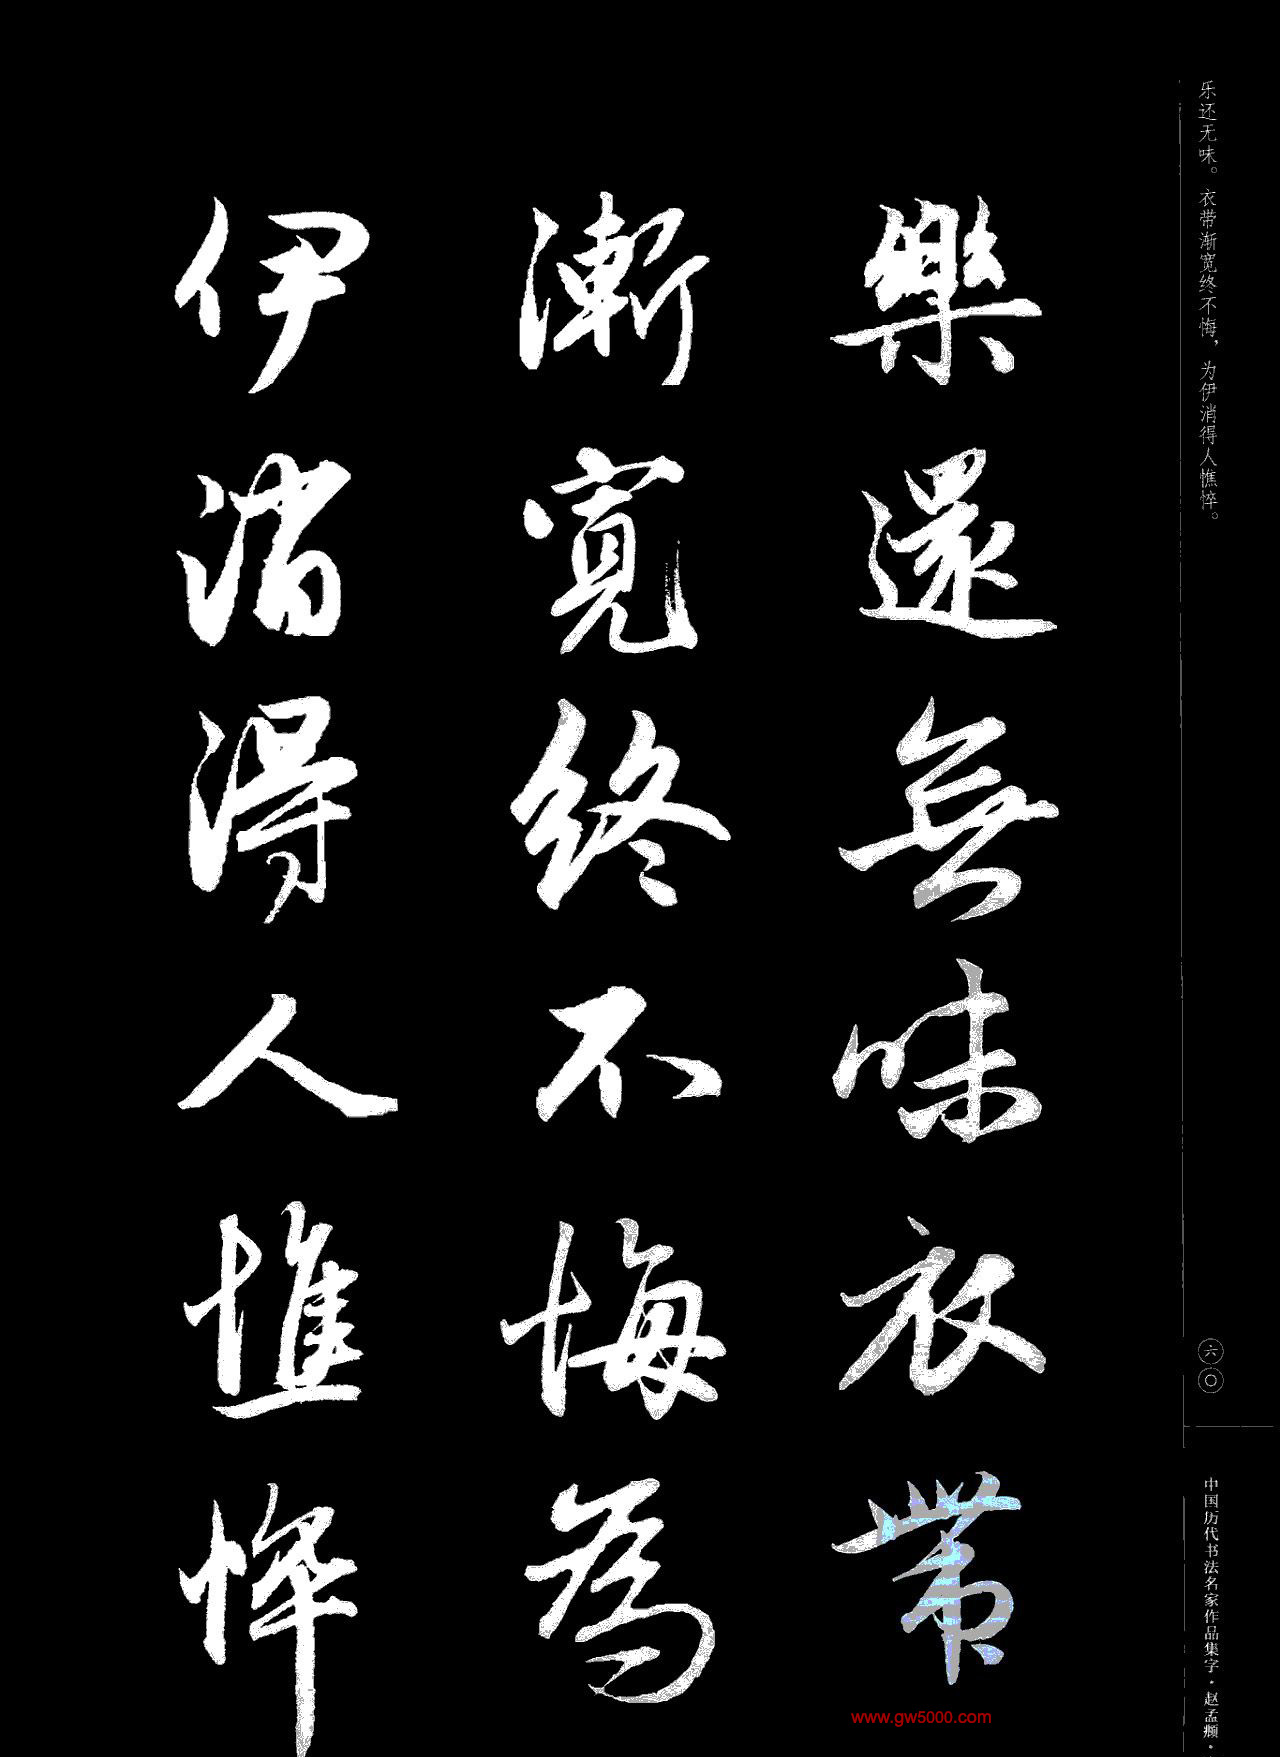 樂還無味衣帶
漸寬終不悔為
伊消得人憔悴
乐还无味。衣带渐宽终不悔，为伊消得人憔悴。
六〇
中国历代书法名家作品集字·赵孟頫·
www.gw5000.com